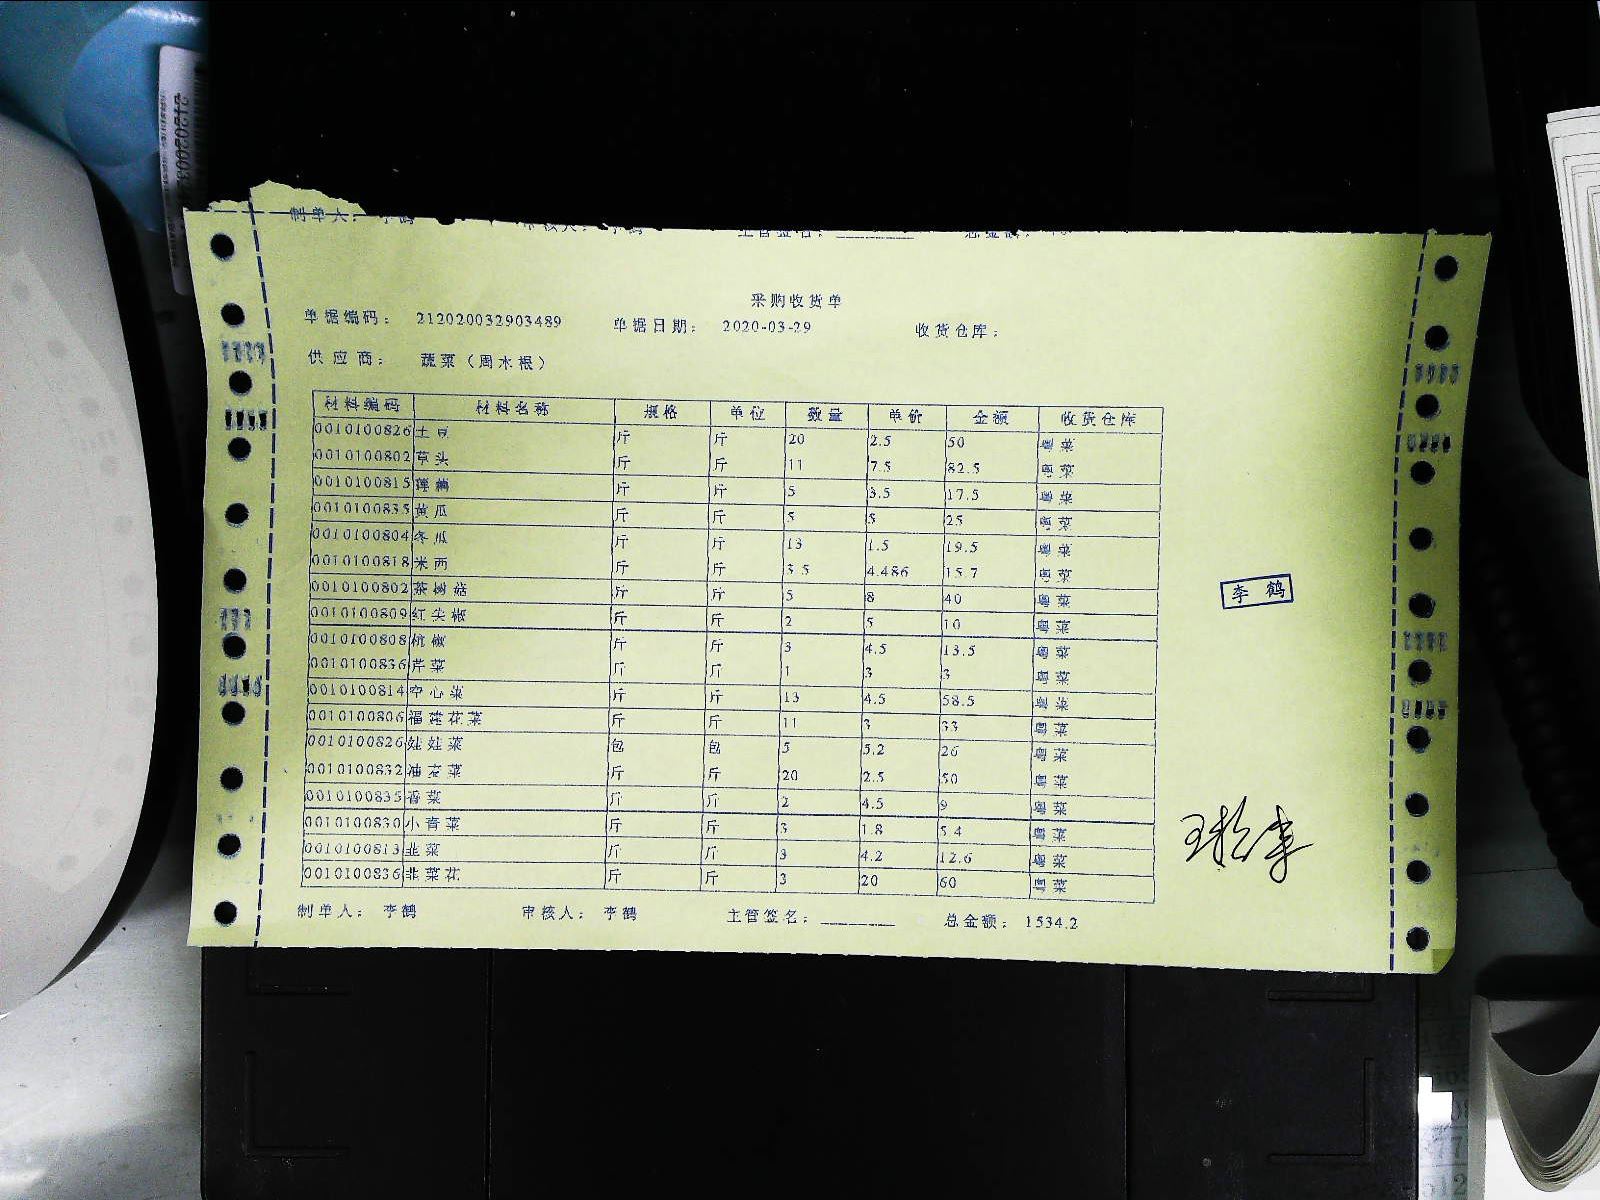 制单人： 李鹤 审核人： 李鹤 主管签名：________ 总金额：
采购收货单
单据编码： 212020032903489 单据日期： 2020-03-29 收货仓库：
供应商： 蔬菜（周木根）
材料编码 材料名称 规格 单位 数量 单价 金额 收货仓库
0010100826 土豆 斤 斤 20 2.5 50 粤菜
0010100802 草头 斤 斤 11 7.5 82.5 粤菜
0010100815 莲藕 斤 斤 5 3.5 17.5 粤菜
0010100835 黄瓜 斤 斤 5 5 25 粤菜
0010100804 冬瓜 斤 斤 13 1.5 19.5 粤菜
0010100818 米西 斤 斤 3.5 4.486 15.7 粤菜
0010100802 茶树菇 斤 斤 5 8 40 粤菜
0010100809 红尖椒 斤 斤 2 5 10 粤菜
0010100808 杭椒 斤 斤 3 4.5 13.5 粤菜
0010100836 芹菜 斤 斤 1 3 3 粤菜
0010100814 空心菜 斤 斤 13 4.5 58.5 粤菜
0010100806 福莲花菜 斤 斤 11 3 33 粤菜
0010100826 娃娃菜 包 包 5 5.2 26 粤菜
0010100832 油麦菜 斤 斤 20 2.5 50 粤菜
0010100835 香菜 斤 斤 2 4.5 9 粤菜
0010100830 小青菜 斤 斤 3 1.8 5.4 粤菜
0010100813 韭菜 斤 斤 3 4.2 12.6 粤菜
0010100836 韭菜花 斤 斤 3 20 60 粤菜
制单人： 李鹤 审核人： 李鹤 主管签名：________ 总金额： 1534.2
李鹤